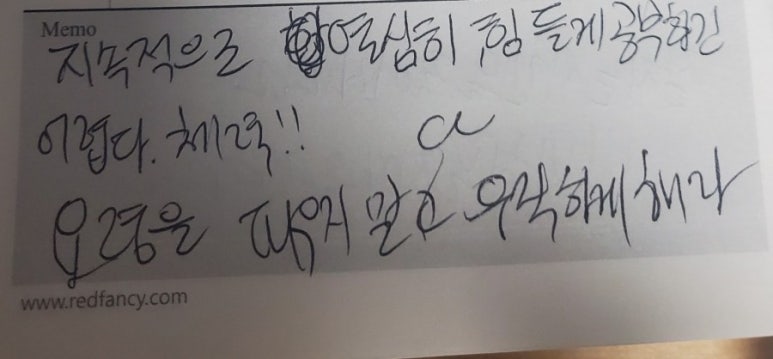 Memo
지속적으로 열심히 힘들게 공부하긴
어렵다. 체력!!
a
요령을 피우지 말고 우직하게 해라
www.redfancy.com